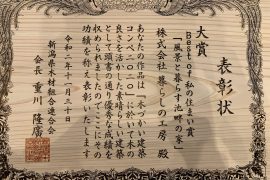 表彰状
大賞
Best of 私の住まい賞
「風景と暮らす池畔の家」
株式会社 暮らしの工房 殿
あなたの作品は「木づかい建築
コンペ二〇二〇」に於いて木の
良さを活かした素晴らしい建築
として頭書の通り優秀な成績を
収められましたのでここにその
功績を称え表彰いたします
令和二年十一月三十日
新潟県木材組合連合会
会長 重川隆廣